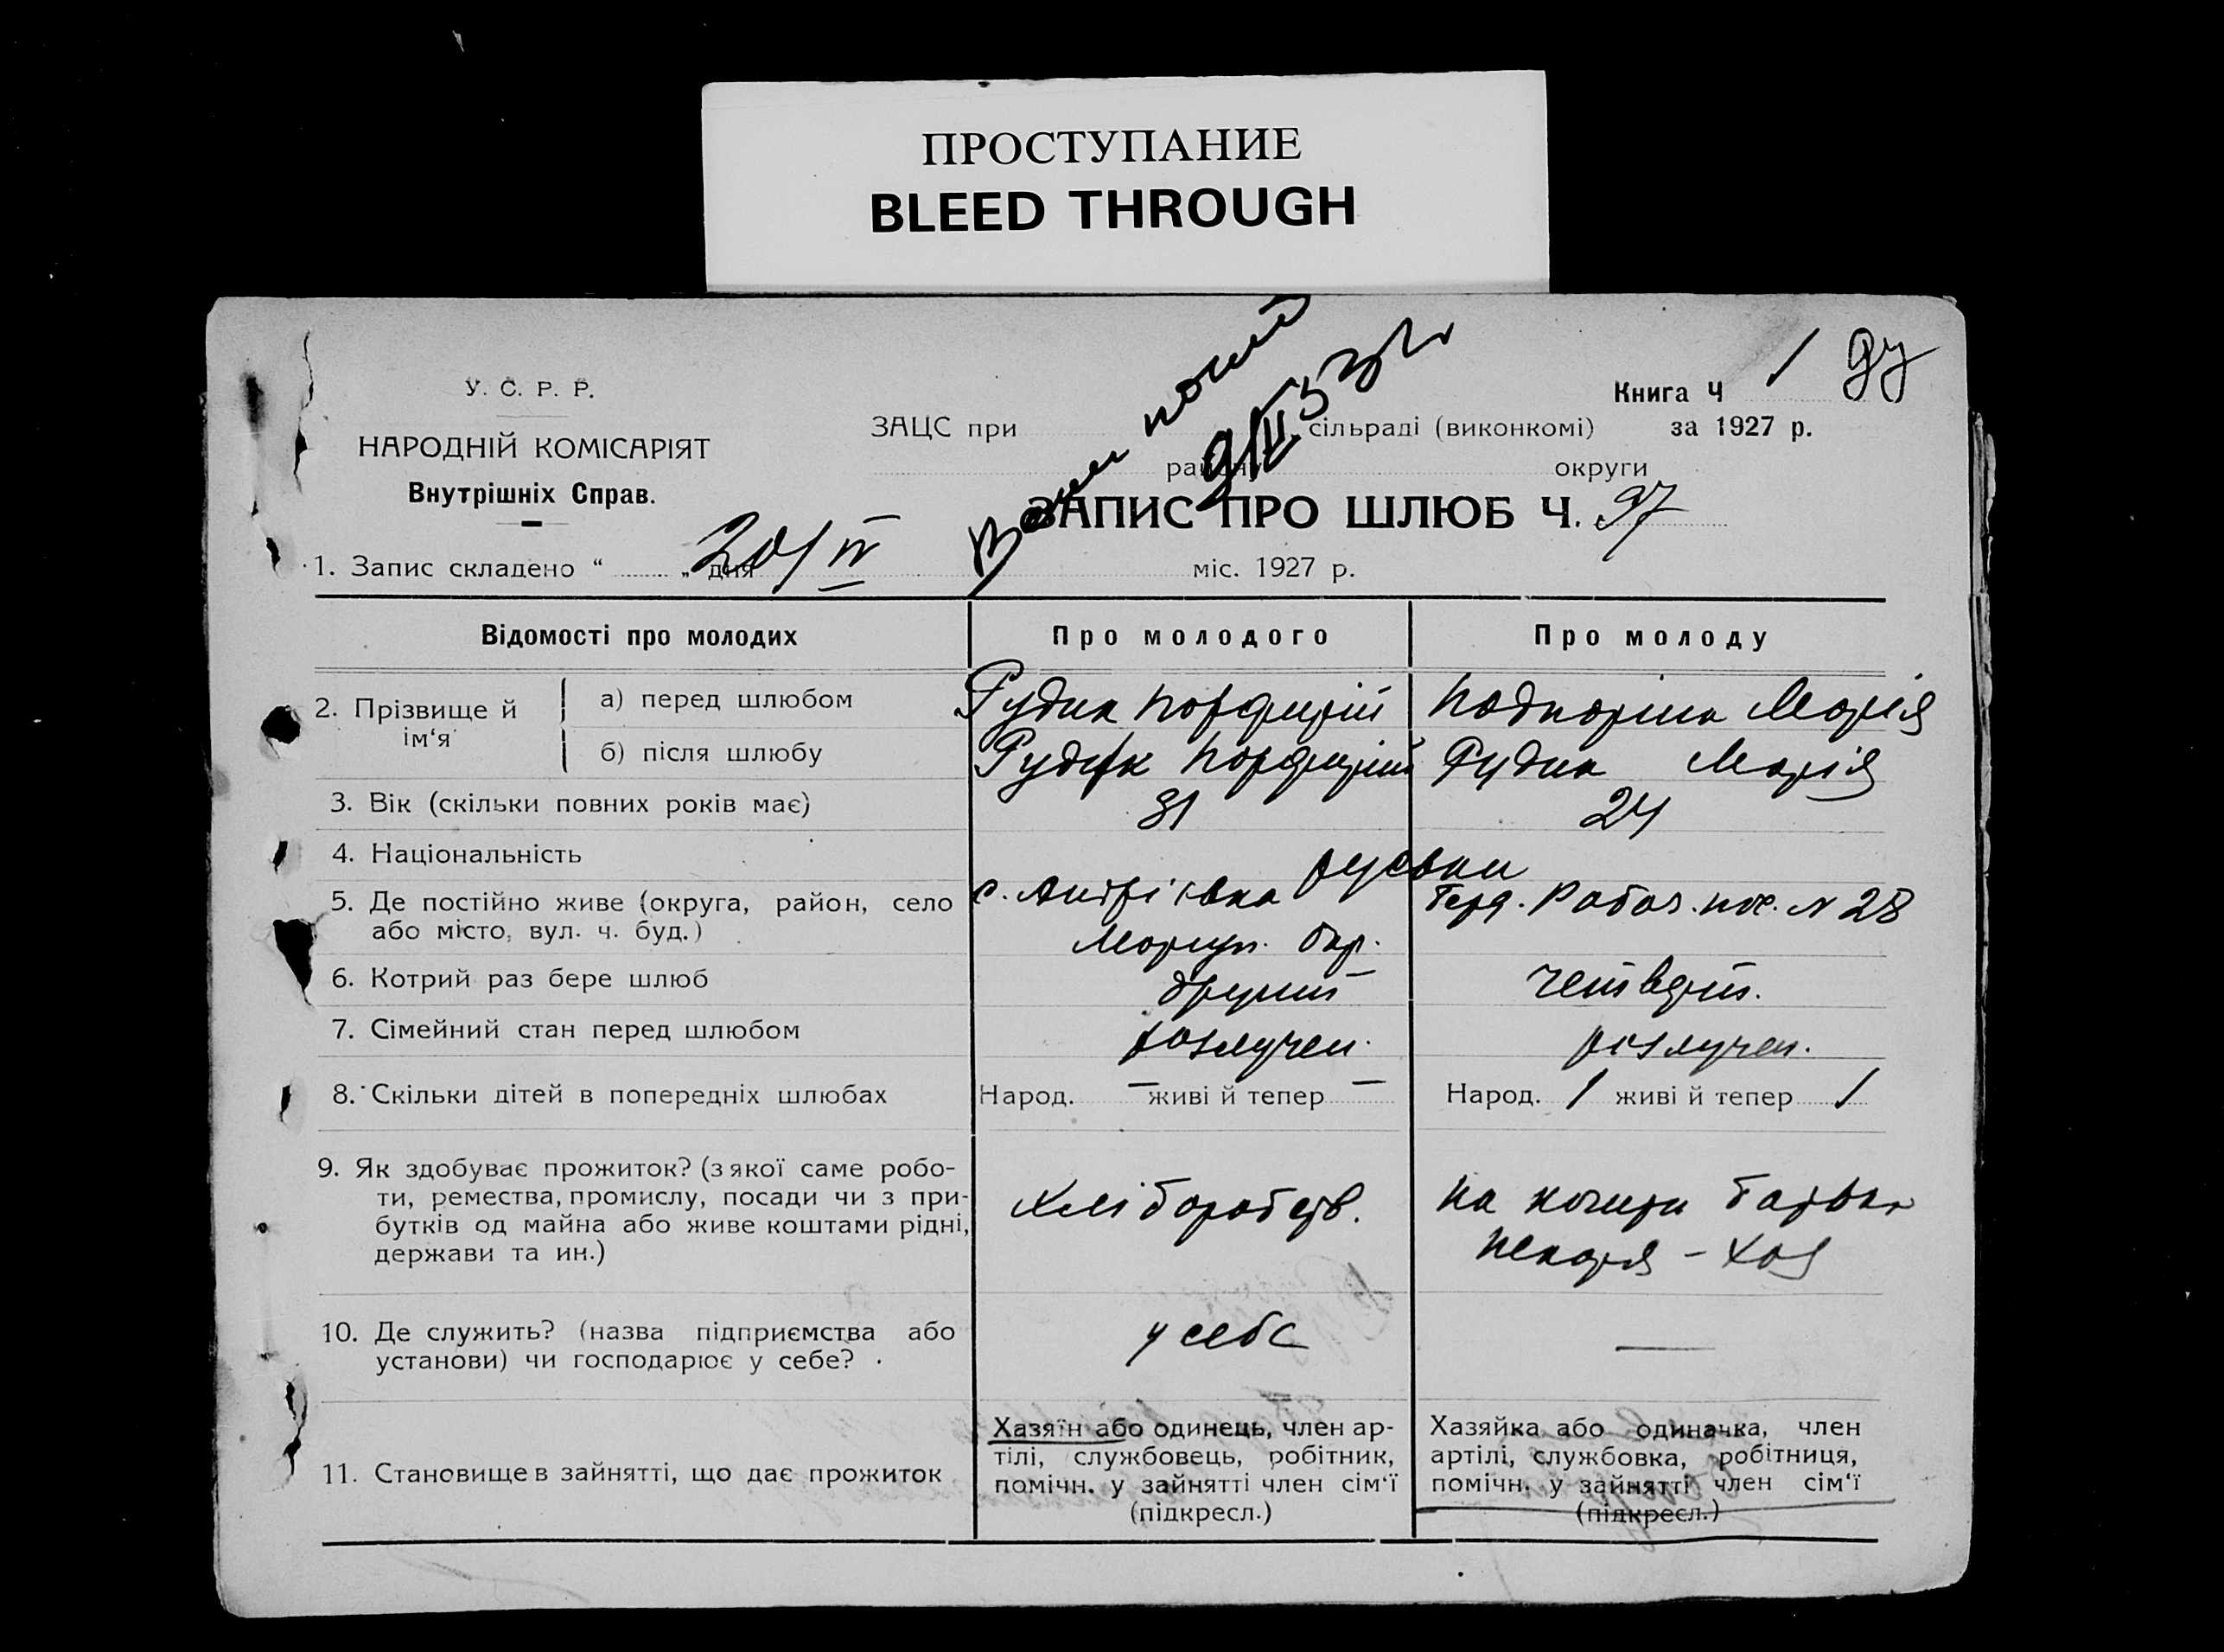 ПРОСТУПАНИЕ
BLEED THROUGH
Книга Ч 1 97
У. С. Р. Р.
НАРОДНІЙ КОМІСАРІЯТ
Внутрішніх Справ.
ЗАЦС при сільраді (виконкомі) за 1927 р.
району округи
ЗАПИС ПРО ШЛЮБ Ч. 97
1. Запис складено “ „ дня 20/IV міс. 1927 р.
Відомості про молодих Про молодого Про молоду
2. Прізвище й ім‘я
а) перед шлюбом Рудик Порфирій Марія
б) після шлюбу Рудик Порфирій Рудик Марія
3. Вік (скільки повних років має) 31 24
4. Національність руськи
5. Де постійно живе (округа, район, село с. Андріівка № 28
або місто, вул. ч. буд.) Мариуп. Окр.
6. Котрий раз бере шлюб другий четверт.
7. Сімейний стан перед шлюбом розлучен. розлучен.
8. Скільки дітей в попередніх шлюбах Народ. – живі й тепер – Народ. 1 живі й тепер 1
9. Як здобуває прожиток? (з якої саме робо-
ти, ремества, промислу, посади чи з при-
бутків од майна або живе коштами рідні,
держави та ин.)
Хліборобств.
на кошти батька
пекаря – хаз
10. Де служить? (назва підприємства або
установи) чи господарює у себе?
у себе —
11. Становище в зайнятті, що дає прожиток
Хазяїн або одинець, член ар-
тілі, службовець, робітник,
помічн. у зайнятті член сім‘ї
(підкресл.)
Хазяйка або одиначка, член
артілі, службовка, робітниця,
помічн. у зайнятті член сім‘ї
(підкресл.)